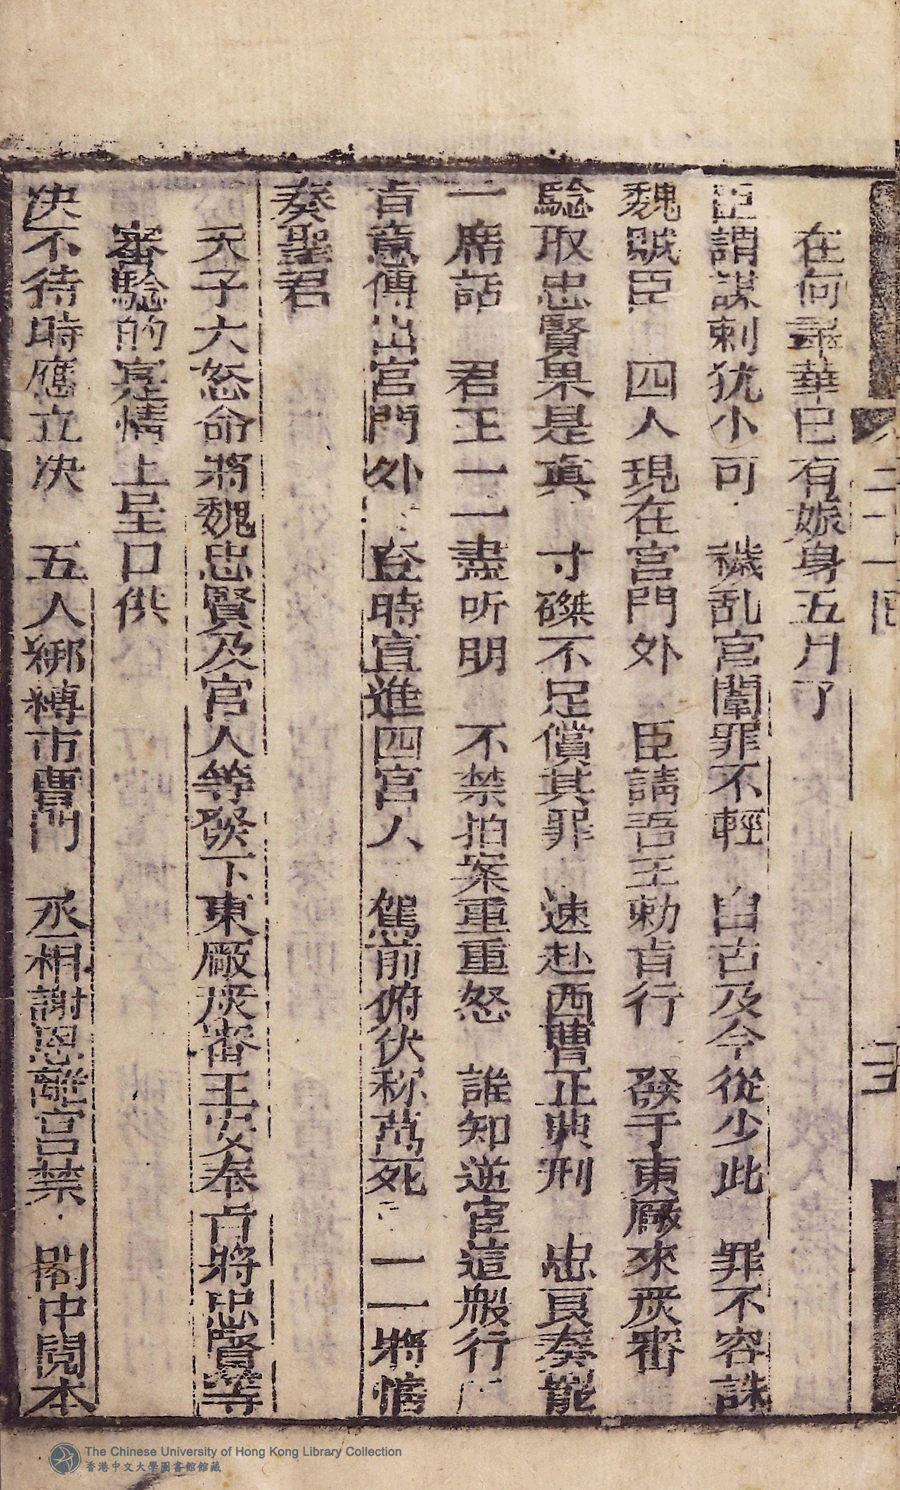 在何尋華已有娠身五月了
臣謂謀刺犹小可 穢乱宮闈罪不輕 自古及今從少此 罪不容誅
魏賊臣 四人現在宮門外 臣請吾王勅旨行 發于東厰來嚴審
騐取忠賢果是真 寸磔不足償其罪 速赴西曹正典刑 忠良奏罷
一席話 君王一一盡听明 不禁拍案重重怒 誰知逆宦這般行
旨意傳出宮門外 登時宣進四宮人 駕前俯伏称萬死 一一將情
奏聖君
天子大怒命將魏忠賢及宮人等發下東厰嚴審王安奉旨將忠賢等
審騐的寔情上呈口供
决不待時應立决 五人綁縛市曹門 丞相謝恩離宮禁 閣中閲本
二十一回
The Chinese University of Hong Kong Library Collection
香港中文大學圖書館館藏